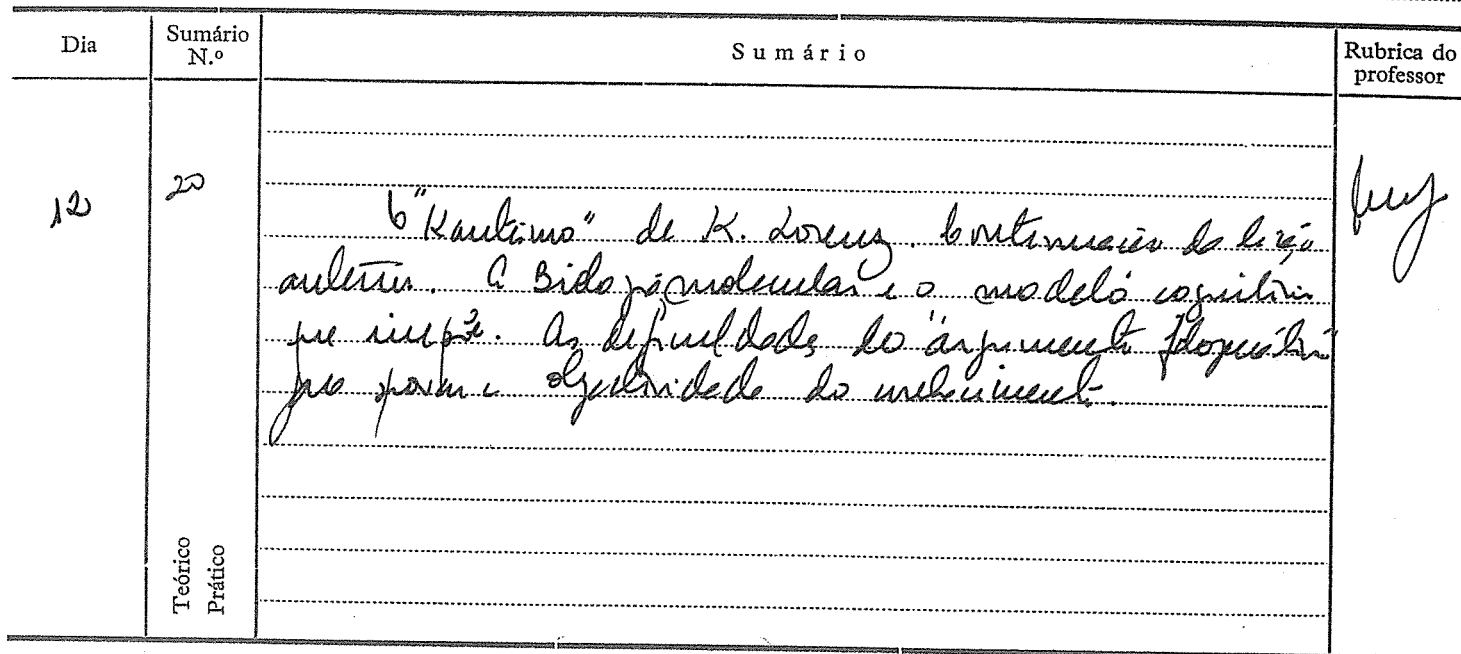 Dia
Sumário N.º
Sumário
Rubrica do professor
12
20
O "Kantismo" de K. Lorenz. Continuação da lição
anterior. A Biologia molecular e o modelo cognitivo
que impõe. As dificuldades do "argumento filogenético"
que prova a objectividade do conhecimento.
Teórico
Prático